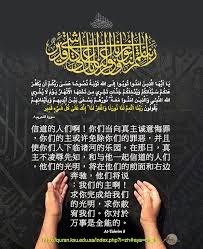 يَا أَيُّهَا الَّذِينَ آمَنُوا تُوبُوا إِلَى اللَّهِ تَوْبَةً نَّصُوحًا عَسَىٰ رَبُّكُمْ أَن يُكَفِّرَ
عَنكُمْ سَيِّئَاتِكُمْ وَيُدْخِلَكُمْ جَنَّاتٍ تَجْرِي مِن تَحْتِهَا الْأَنْهَارُ يَوْمَ لَا يُخْزِي
اللَّهُ النَّبِيَّ وَالَّذِينَ آمَنُوا مَعَهُ نُورُهُمْ يَسْعَىٰ بَيْنَ أَيْدِيهِمْ وَبِأَيْمَانِهِمْ
يَقُولُونَ رَبَّنَا أَتْمِمْ لَنَا نُورَنَا وَاغْفِرْ لَنَا إِنَّكَ عَلَىٰ كُلِّ شَيْءٍ قَدِيرٌ
信道的人们啊!你们当向真主诚意悔罪
,你们的主或许免除你们的罪恶,并且
使你们入下临诸河的乐园。在那日,真
主不凌辱先知,和与他一起信道的人们
,他们的光明,将在他们的前面和右边
奔驰,他们将说
:我们的主啊!
求你完成给我们
的光明,求你赦
宥我们。你对于
万事是全能的。
At-Tahrim 8